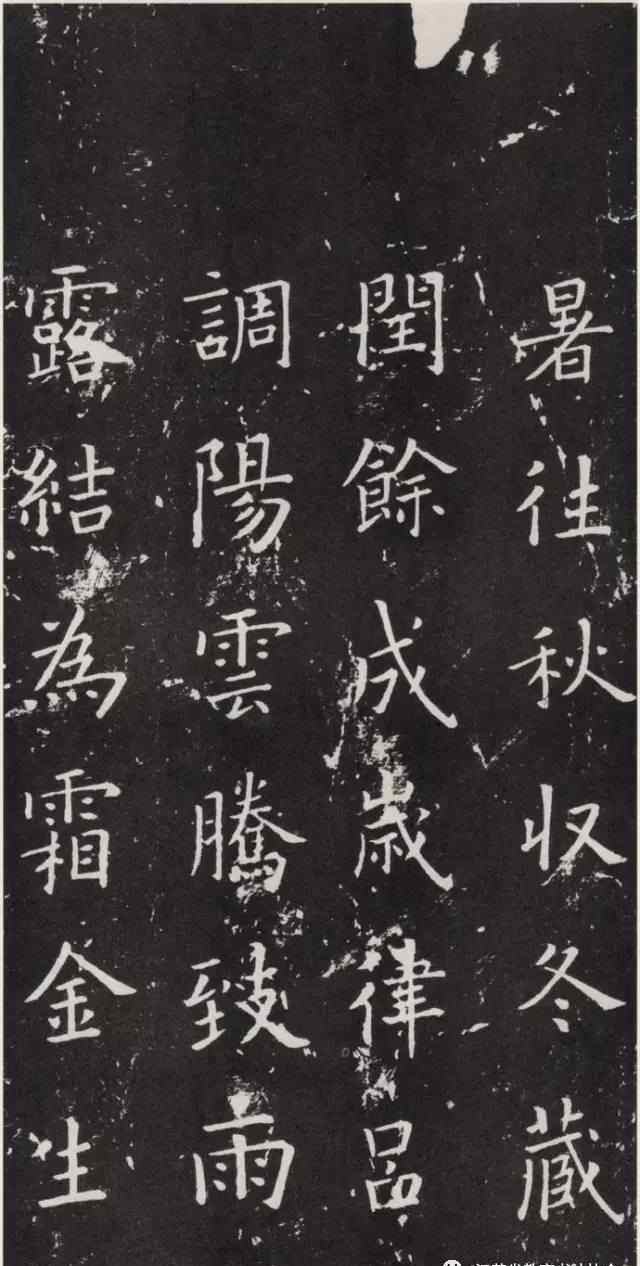 暑往秋収冬蔵
閏餘成歳律呂
調陽雲騰致雨
露結為霜金生